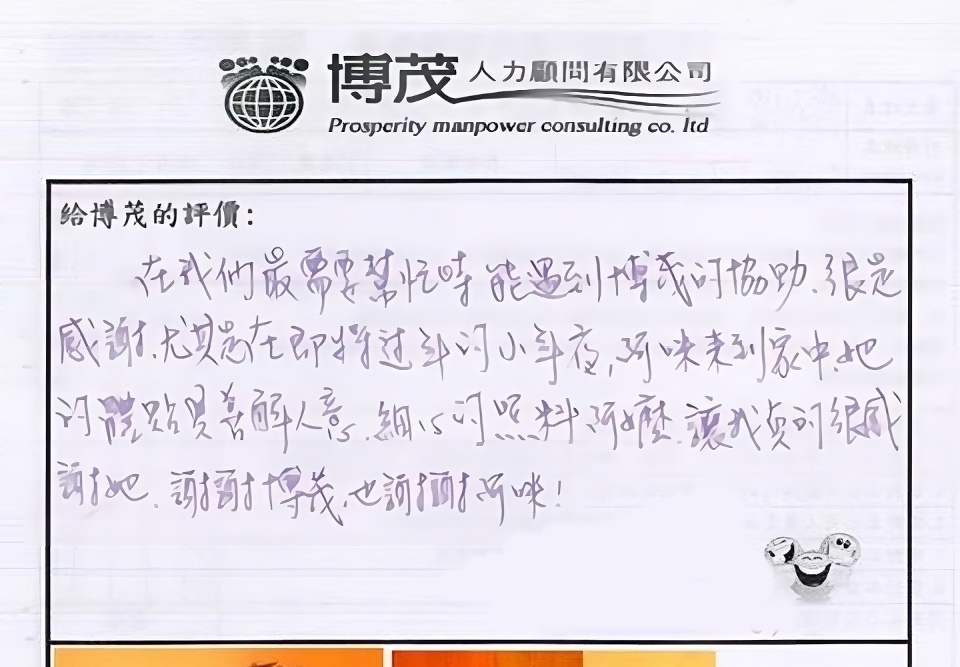 博茂人力顧問有限公司
Prosperity manpower consulting co. ltd
給博茂的評價:
在我們最需要幫忙時能遇到博茂的協助.很是
感謝.尤其是在即將过年的小年夜,阿咪來到家中.她
的體貼與善解人意.細心的照料阿嬤.讓我真的很感
謝她.謝謝博茂.也謝謝阿咪!